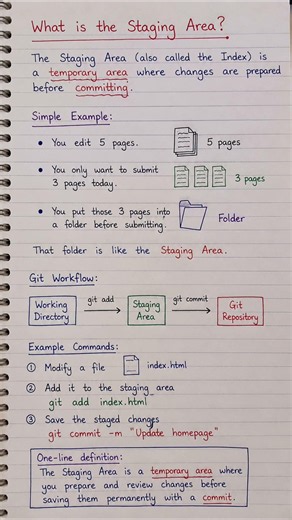 What is the Staging Area?
The Staging Area (also called the Index) is
a temporary area where changes are prepared
before committing.
Simple Example:
• You edit 5 pages.
5 pages
• You only want to submit
3 pages today.
3 pages
• You put those 3 pages into
a folder before submitting.
Folder
That folder is like the Staging Area.
Git Workflow:
Working
Directory
git add
Staging
Area
git commit
Git
Repository
Example Commands:
① Modify a file
index.html
② Add it to the staging area
git add index.html
③ Save the staged changes
git commit -m "Update homepage"
One-line definition:
The Staging Area is a temporary area where
you prepare and review changes before
saving them permanently with a commit.